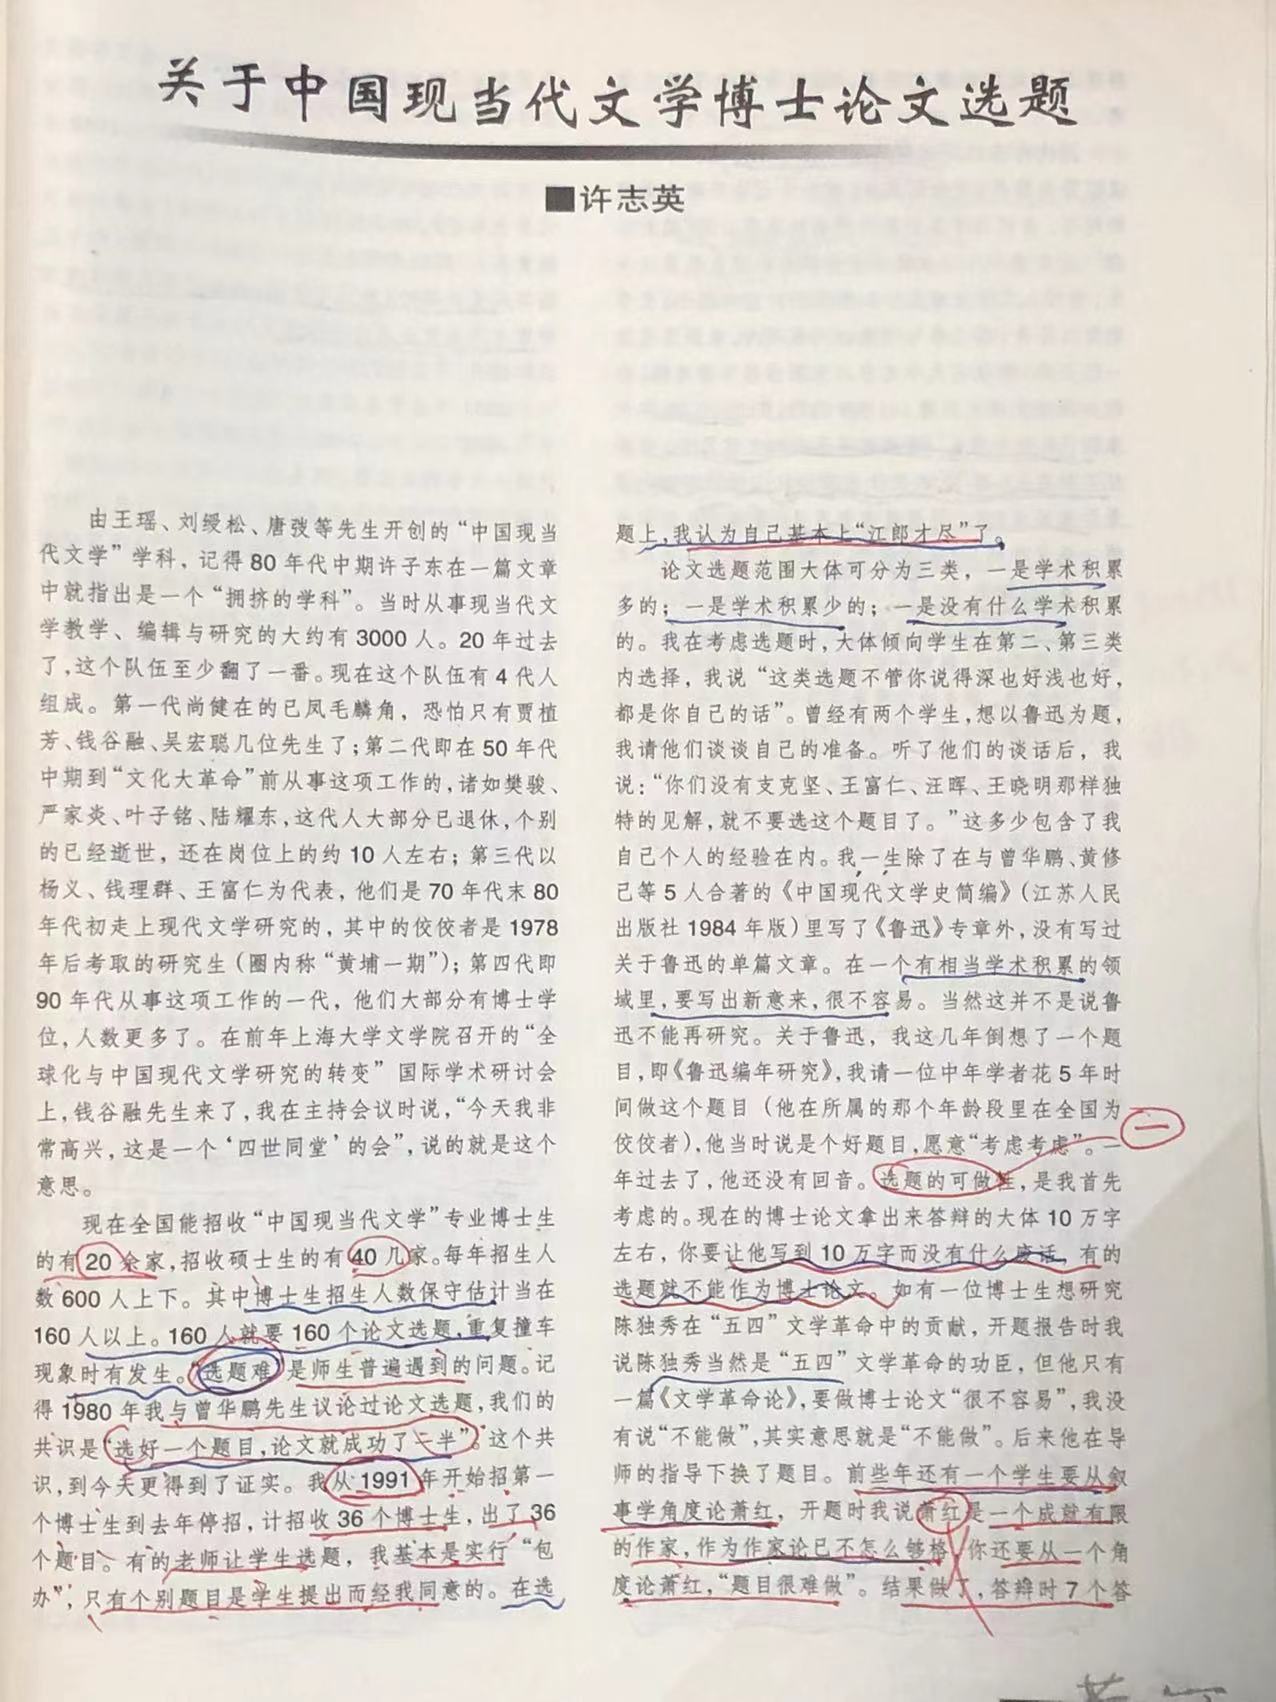 关于中国现当代文学博士论文选题
■许志英
由王瑶、刘绶松、唐弢等先生开创的“中国现当
代文学”学科，记得80年代中期许子东在一篇文章
中就指出是一个“拥挤的学科”。当时从事现当代文
学教学、编辑与研究的大约有3000人。20年过去
了，这个队伍至少翻了一番。现在这个队伍有4代人
组成。第一代尚健在的已凤毛麟角，恐怕只有贾植
芳、钱谷融、吴宏聪几位先生了；第二代即在50年代
中期到“文化大革命”前从事这项工作的，诸如樊骏、
严家炎、叶子铭、陆耀东，这代人大部分已退休，个别
的已经逝世，还在岗位上的约10人左右；第三代以
杨义、钱理群、王富仁为代表，他们是70年代末80
年代初走上现代文学研究的，其中的佼佼者是1978
年后考取的研究生（圈内称“黄埔一期”）；第四代即
90年代从事这项工作的一代，他们大部分有博士学
位，人数更多了。在前年上海大学文学院召开的“全
球化与中国现代文学研究的转变”国际学术研讨会
上，钱谷融先生来了，我在主持会议时说，“今天我非
常高兴，这是一个‘四世同堂’的会”，说的就是这个
意思。
现在全国能招收“中国现当代文学”专业博士生
的有20余家，招收硕士生的有40几家。每年招生人
数600人上下。其中博士生招生人数保守估计当在
160人以上。160人就要160个论文选题，重复撞车
现象时有发生。“选题难”是师生普遍遇到的问题。记
得1980年我与曾华鹏先生议论过论文选题，我们的
共识是“选好一个题目，论文就成功了一半”。这个共
识，到今天更得到了证实。我从1991年开始招第一
个博士生到去年停招，计招收36个博士生，出了36
个题目。有的老师让学生选题，我基本是实行“包
办”，只有个别题目是学生提出而经我同意的。在选
题上，我认为自己基本上“江郎才尽”了。
论文选题范围大体可分为三类，一是学术积累
多的；一是学术积累少的；一是没有什么学术积累
的。我在考虑选题时，大体倾向学生在第二、第三类
内选择，我说“这类选题不管你说得深也好浅也好，
都是你自己的话”。曾经有两个学生，想以鲁迅为题，
我请他们谈谈自己的准备。听了他们的谈话后，我
说：“你们没有支克坚、王富仁、汪晖、王晓明那样独
特的见解，就不要选这个题目了。”这多少包含了我
自己个人的经验在内。我一生除了在与曾华鹏、黄修
己等5人合著的《中国现代文学史简编》（江苏人民
出版社1984年版）里写了《鲁迅》专章外，没有写过
关于鲁迅的单篇文章。在一个有相当学术积累的领
域里，要写出新意来，很不容易。当然这并不是说鲁
迅不能再研究。关于鲁迅，我这几年倒想了一个题
目，即《鲁迅编年研究》，我请一位中年学者花5年时
间做这个题目（他在所属的那个年龄段里在全国为
佼佼者），他当时说是个好题目，愿意“考虑考虑”。一
一
年过去了，他还没有回音。选题的可做性，是我首先
考虑的。现在的博士论文拿出来答辩的大体10万字
左右，你要让他写到10万字而没有什么废话，有的
选题就不能作为博士论文。如有一位博士生想研究
陈独秀在“五四”文学革命中的贡献，开题报告时我
说陈独秀当然是“五四”文学革命的功臣，但他只有
一篇《文学革命论》，要做博士论文“很不容易”，我没
有说“不能做”，其实意思就是“不能做”。后来他在导
师的指导下换了题目。前些年还有一个学生要从叙
事学角度论萧红，开题时我说萧红是一个成就有限
的作家，作为作家论已不怎么够格，你还要从一个角
度论萧红，“题目很难做”。结果做了，答辩时7个答